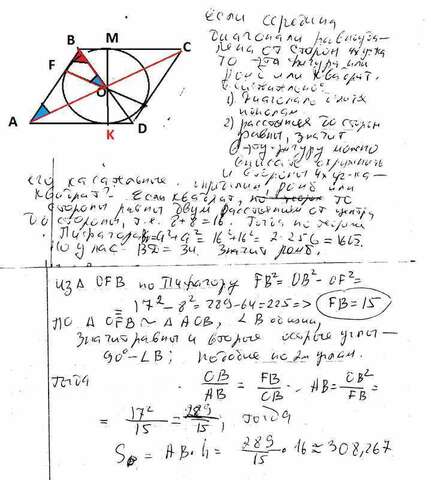 B M C
F
O
A K D
Если середина
диагонали равноуда-
лена от сторон 4х-уг-ка
то это фигура или
ромб или квадрат.
1) диагонали делятся
пополам
2) расстояния до сторон
равны, значит
в эту фигуру можно
вписать окружность
и стороны 4х-уг-ка-
его касательные. ромб или
квадрат? Если квадрат, то
стороны равны двум расстояниям от центра
до стороны, т.е. 8+8=16. Тогда по теореме
Пифагора = 16²+16² = 2·256 =
а у нас BD = 34. Значит ромб.
Из Δ OFB по Пифагору FB² = OB² - OF² =
= 17² - 8² = 289 - 64 = 225 => FB = 15
по Δ OFB ~ Δ AOB, ∠B общий,
значит равны и вторые острые углы-
90° - ∠B; подобие по 2м углам.
Тогда OB/AB = FB/OB. AB = OB²/FB =
= 17²/15 = 289/15, тогда
S = AB·h = 289/15 · 16 ≈ 308,267